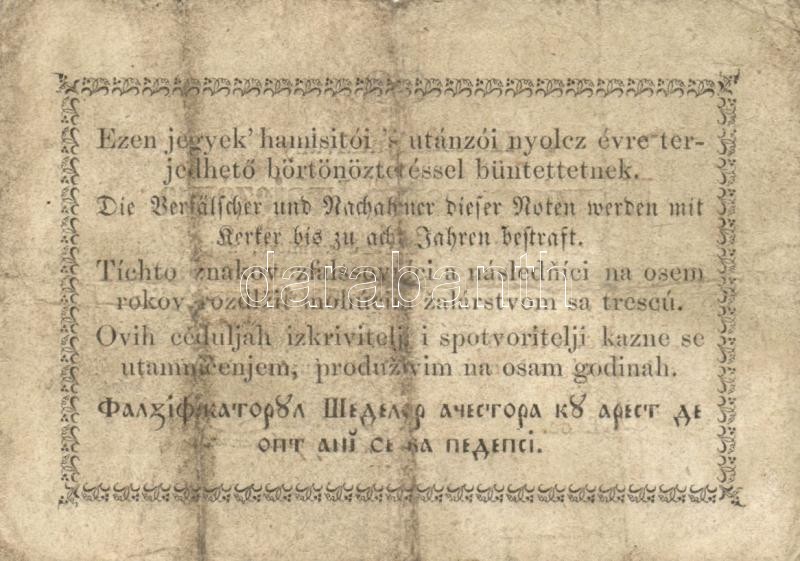 Ezen jegyek' hamisitói 's utánzói nyolcz évre ter-
jedhető börtönöztetéssel büntettetnek.
Die Verfälscher und Nachahmer dieser Noten werden mit
Kerker bis zu acht Jahren bestraft.
Tíchto znakov zfalšovníci a následňíci na osem
rokov rozeložit žalárstvom sa trescú.
darabanth
Ovih céduljah izkrivitelji i spotvoritelji kazne se
utamničenjem, produživim na osam godinah.
Фалꙁіфікаторꙋл Шеделор ачестора кꙋ арест де
опт анĭ се ва педепсі.